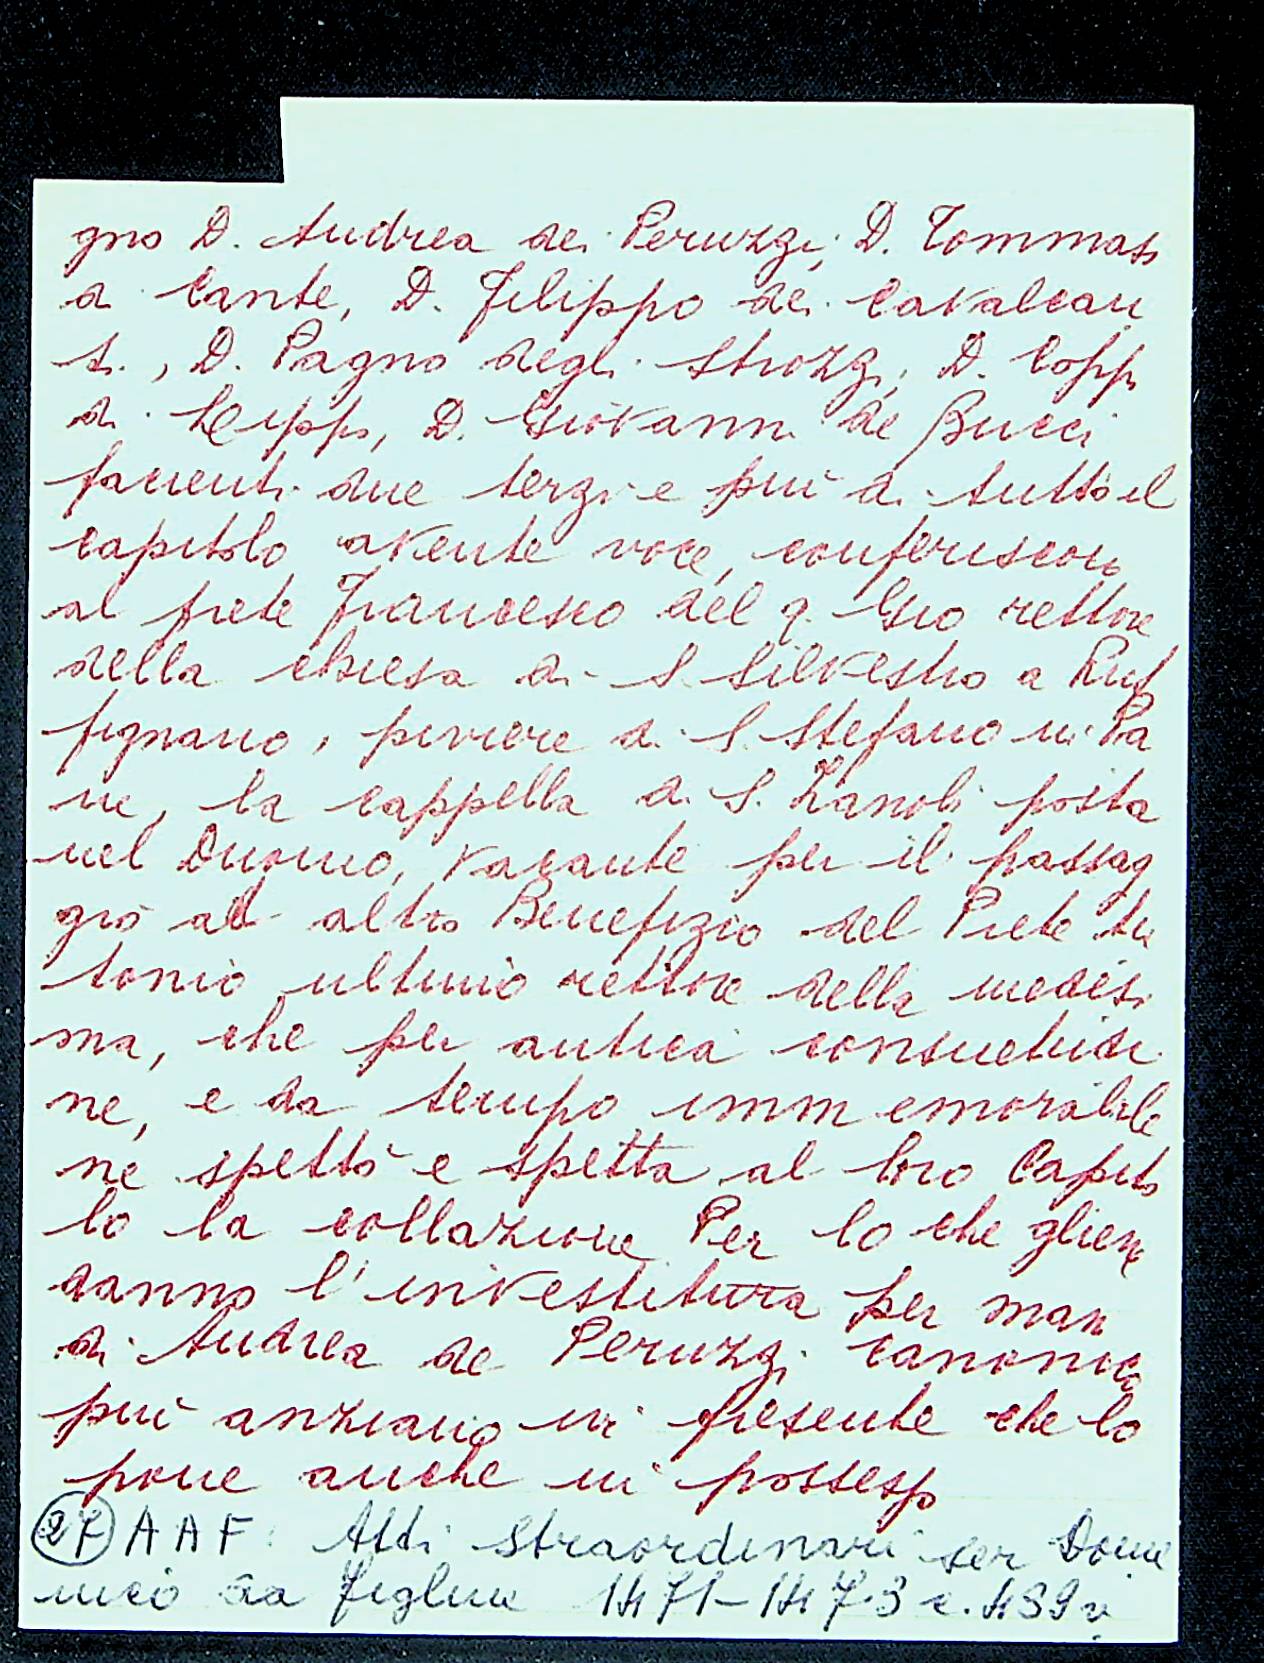 gno D. Andrea dei Peruzzi, D. Tommaso
di Cante, D. Filippo dei Cavalcan
ti, D. Pagno degli Strozzi, D. Coppo
di Lippo, D. Giovanni de Bucci
facienti due terzi e più di tutto il
capitolo avente voce, conferiscono
al prete Francesco del q. Gio rettore
della chiesa di S. Silvestro a Ruf
fignano, piviere di S. Stefano in Pa
ne, la cappella di S. Zanobi posta
nel Duomo, vacante per il passag
gio ad altro Benefizio del Prete An
tonio ultimo rettore della medesi
ma, che per antica consuetudi
ne, e da tempo immemorabile
ne spettò e spetta al loro Capito
lo la collazione Per lo che gliene
danno l'investitura per mano
di Andrea de Peruzzi canonico
più anziano ivi presente che lo
pone anche in possesso
27 A A F: Atti straordinari ser Dome
nico da Figline 1471-1473 c. 459v